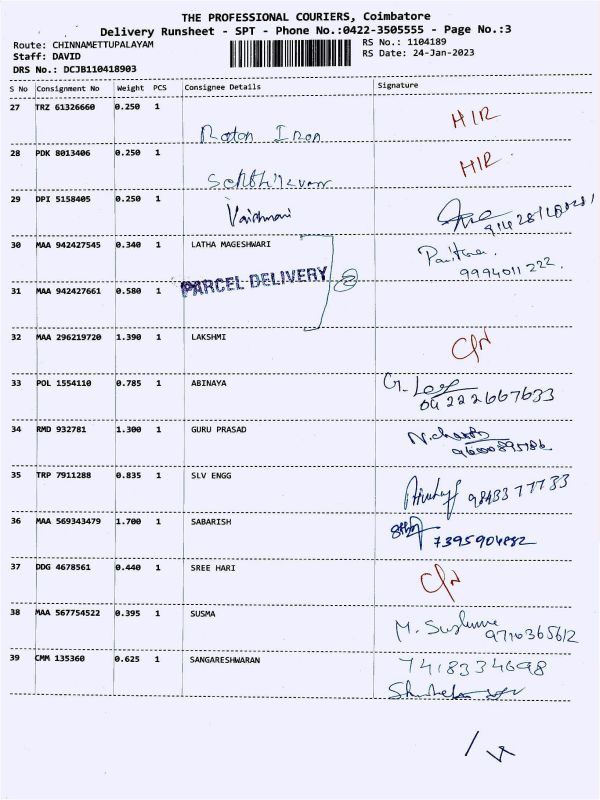 THE PROFESSIONAL COURIERS, Coimbatore
Delivery Runsheet - SPT - Phone No.:0422-3505555 - Page No.:3
Route: CHINNAMETTUPALAYAM
Staff: DAVID
DRS No.: DCJB110418903
RS No.: 1104189
RS Date: 24-Jan-2023
S No Consignment No Weight PCS Consignee Details Signature
27 TRZ 61326660 0.250 1 Raton Iron HIR
28 PDK 8013406 0.250 1 HIR
29 DPI 5158405 0.250 1 Vaishnavi
30 MAA 942427545 0.340 1 LATHA MAGESHWARI
9994011222.
PARCEL DELIVERY 2
31 MAA 942427661 0.580 1
32 MAA 296219720 1.390 1 LAKSHMI C/N
33 POL 1554110 0.785 1 ABINAYA
04222667633
34 RMD 932781 1.300 1 GURU PRASAD
35 TRP 7911288 0.835 1 SLV ENGG 9843377733
36 MAA 569343479 1.700 1 SABARISH
7395904882
37 DDG 4678561 0.440 1 SREE HARI C/N
38 MAA 567754522 0.395 1 SUSMA M.
9710365612
39 CMM 135360 0.625 1 SANGARESHWARAN 7418334698